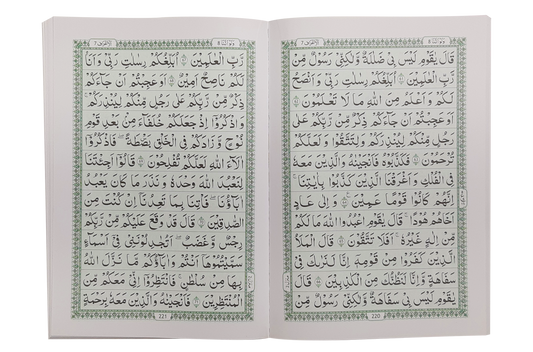 قَالَ يٰقَوْمِ لَيْسَ بِيْ ضَلٰلَةٌ وَّلٰكِنِّيْ رَسُوْلٌ مِّنْ
رَّبِّ الْعٰلَمِيْنَ ۝ اُبَلِّغُكُمْ رِسٰلٰتِ رَبِّيْ وَاَنْصَحُ
لَكُمْ وَاَعْلَمُ مِنَ اللّٰهِ مَا لَا تَعْلَمُوْنَ ۝
اَوَعَجِبْتُمْ اَنْ جَآءَكُمْ ذِكْرٌ مِّنْ رَّبِّكُمْ عَلٰى
رَجُلٍ مِّنْكُمْ لِيُنْذِرَكُمْ وَلِتَتَّقُوْا وَلَعَلَّكُمْ
تُرْحَمُوْنَ ۝ فَكَذَّبُوْهُ فَاَنْجَيْنٰهُ وَالَّذِيْنَ مَعَهٗ
فِي الْفُلْكِ وَاَغْرَقْنَا الَّذِيْنَ كَذَّبُوْا بِاٰيٰتِنَا
اِنَّهُمْ كَانُوْا قَوْمًا عَمِيْنَ ۝ وَاِلٰى عَادٍ
اَخَاهُمْ هُوْدًا قَالَ يٰقَوْمِ اعْبُدُوا اللّٰهَ مَا لَكُمْ
مِّنْ اِلٰهٍ غَيْرُهٗ اَفَلَا تَتَّقُوْنَ ۝ قَالَ الْمَلَاُ
الَّذِيْنَ كَفَرُوْا مِنْ قَوْمِهٖٓ اِنَّا لَنَرٰىكَ فِيْ
سَفَاهَةٍ وَّاِنَّا لَنَظُنُّكَ مِنَ الْكٰذِبِيْنَ ۝ قَالَ
يٰقَوْمِ لَيْسَ بِيْ سَفَاهَةٌ وَّلٰكِنِّيْ رَسُوْلٌ مِّنْ
220
رَّبِّ الْعٰلَمِيْنَ ۝ اُبَلِّغُكُمْ رِسٰلٰتِ رَبِّيْ وَاَنَا
لَكُمْ نَاصِحٌ اَمِيْنٌ ۝ اَوَعَجِبْتُمْ اَنْ جَآءَكُمْ
ذِكْرٌ مِّنْ رَّبِّكُمْ عَلٰى رَجُلٍ مِّنْكُمْ لِيُنْذِرَكُمْ
وَاذْكُرُوْٓا اِذْ جَعَلَكُمْ خُلَفَآءَ مِنْۢ بَعْدِ قَوْمِ
نُوْحٍ وَّزَادَكُمْ فِي الْخَلْقِ بَصْۜطَةً فَاذْكُرُوْٓا
اٰلَآءَ اللّٰهِ لَعَلَّكُمْ تُفْلِحُوْنَ ۝ قَالُوْٓا اَجِئْتَنَا
لِنَعْبُدَ اللّٰهَ وَحْدَهٗ وَنَذَرَ مَا كَانَ يَعْبُدُ
اٰبَآؤُنَا فَاْتِنَا بِمَا تَعِدُنَآ اِنْ كُنْتَ مِنَ
الصّٰدِقِيْنَ ۝ قَالَ قَدْ وَقَعَ عَلَيْكُمْ مِّنْ رَّبِّكُمْ
رِجْسٌ وَّغَضَبٌ اَتُجَادِلُوْنَنِيْ فِيْٓ اَسْمَآءٍ
سَمَّيْتُمُوْهَآ اَنْتُمْ وَاٰبَآؤُكُمْ مَّا نَزَّلَ اللّٰهُ
بِهَا مِنْ سُلْطٰنٍ فَانْتَظِرُوْٓا اِنِّيْ مَعَكُمْ مِّنَ
الْمُنْتَظِرِيْنَ ۝ فَاَنْجَيْنٰهُ وَالَّذِيْنَ مَعَهٗ بِرَحْمَةٍ
221